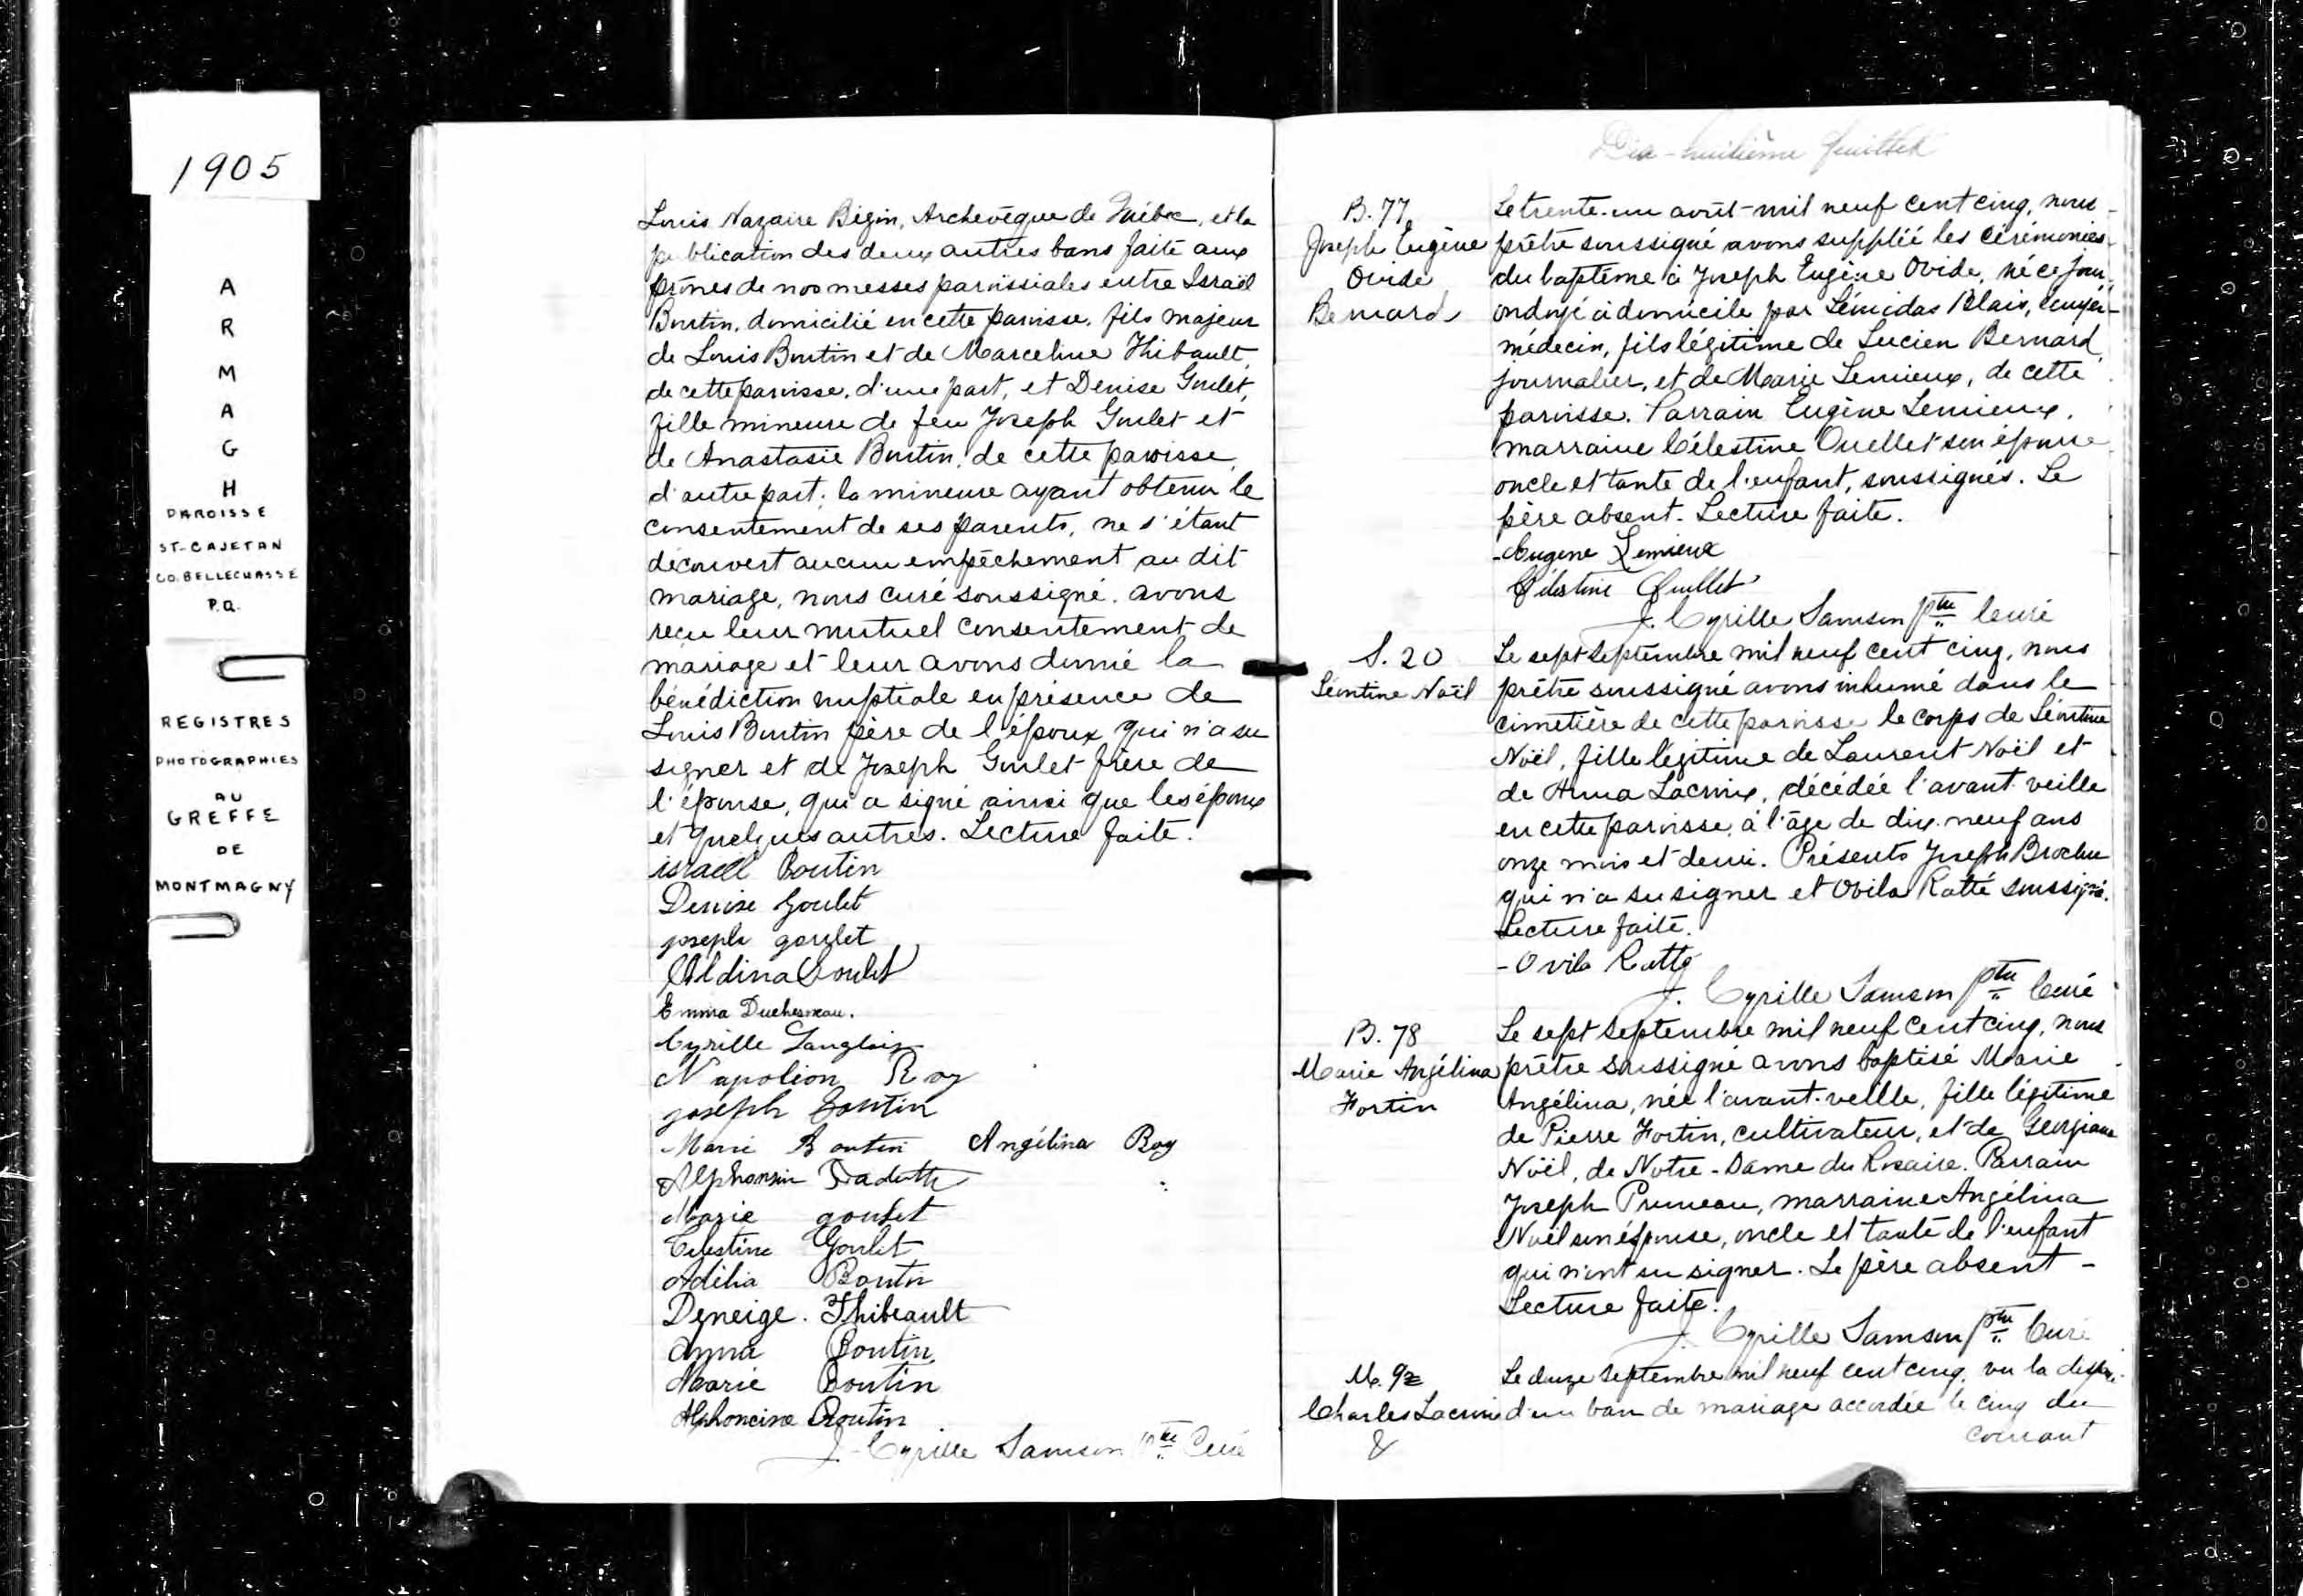 1905
A
R
M
A
G
H
PAROISSE
ST-CAJETAN
CO. BELLECHASSE
P.Q.
REGISTRES
PHOTOGRAPHIES
AU
GREFFE
DE
MONTMAGNY
Louis Nazaire Bégin, Archevêque de Québec, et la
publication des deux autres bans faite aux
prônes de nos messes paroissiales entre Israël
Boutin, domicilié en cette paroisse, fils majeur
de Louis Boutin et de Marceline Thibault,
de cette paroisse, d'une part, et Denise Goulet,
fille mineure de feu Joseph Goulet et
de Anastasie Boutin, de cette paroisse,
d'autre part; la mineure ayant obtenu le
consentement de ses parents, ne s'étant
découvert aucun empêchement au dit
mariage, nous curé soussigné, avons
reçu leur mutuel consentement de
mariage et leur avons donné la
bénédiction nuptiale en présence de
Louis Boutin père de l'époux qui n'a su
signer et de Joseph Goulet frère de
l'épouse, qui a signé ainsi que les époux
et quelques autres. Lecture faite.
israël Boutin
Denise Goulet
joseph goulet
Aldina Goulet
Emma Duchesneau.
Cyrille Langlois
Napoléon Roy
joseph Boutin
Marie Boutin Angélina Roy
Alphonsin
Marie goulet
Celestine Goulet
Adélia Boutin
Deneige. Thibeault
Anna Boutin
Marie Boutin
Alphoncine Boutin
J. Cyrille Samson Ptre Curé
Dix-huitième feuillet
B. 77
Joseph Eugène
Ovide
Bernard
Le trente-un août mil neuf cent cinq, nous
prêtre soussigné avons suppléé les cérémonies
du baptême à Joseph Eugène Ovide, né ce jour,
ondoyé à domicile par Léonidas Blais, écuyer
médecin, fils légitime de Lucien Bernard,
journalier, et de Marie Lemieux, de cette
paroisse. Parrain Eugène Lemieux,
marraine Célestine Ouellet son épouse
oncle et tante de l'enfant, soussignés. Le
père absent. Lecture faite.
Eugene Lemieux
Célestine Ouellet
J. Cyrille Samson Ptre Curé
S. 20
Léontine Noël
Le sept septembre mil neuf cent cinq, nous
prêtre soussigné avons inhumé dans le
cimetière de cette paroisse le corps de Léontine
Noël, fille légitime de Laurent Noël et
de Anna Lacroix, décédée l'avant veille
en cette paroisse, à l'âge de dix-neuf ans
onze mois et demi. Présents Joseph Brochu
qui n'a su signer et Ovila Ratté soussigné.
Lecture faite.
-Ovila Ratte
J. Cyrille Samson Ptre Curé
B. 78
Marie Angélina
Fortin
Le sept septembre mil neuf cent cinq, nous
prêtre soussigné avons baptisé Marie
Angélina, née l'avant-veille, fille légitime
de Pierre Fortin, cultivateur, et de Georgiana
Noël, de Notre-Dame du Rosaire. Parrain
Joseph Pruneau, marraine Angélina
Noël son épouse, oncle et tante de l'enfant
qui n'ont su signer. Le père absent -
Lecture faite.
J. Cyrille Samson Ptre Curé
M. 9
Charles Lacroix
&
Le onze septembre mil neuf cent cinq, vu la dispense
d'un ban de mariage accordée le cinq du
courant